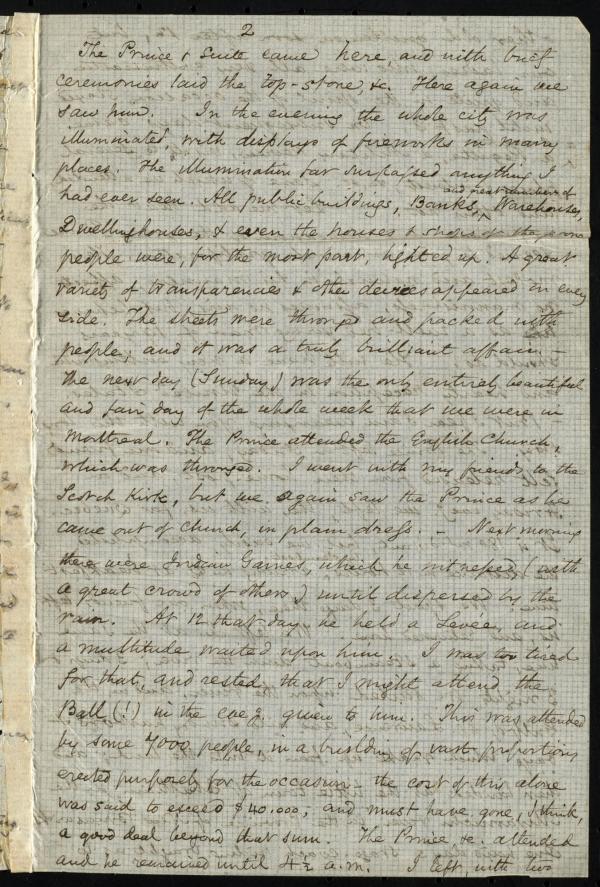 2
The Prince & suite came here, and with brief
ceremonies laid the top-stone, &c. Here again we
saw him. In the evening the whole city was
illuminated with displays of fireworks in many
places. The illumination far surpassed anything I
had ever seen. All public buildings, Banks, and great numbers of Warehouses,
Dwellinghouses, & even the houses & shops of the poor
people were, for the most part, lighted up. A great
variety of transparencies & other devices appeared on every
side. The streets were thronged and packed with
people; and it was a truly brilliant affair. –
The next day (Sunday) was the only entirely beautiful
and fair day of the whole week that we were in
Montreal. The Prince attended the English Church,
which was thronged. I went with my friends to the
Scotch Kirk, but we again saw the Prince as he
came out of church, in plain dress. – Next morning
there were Indian Games, which he witnessed (with
a great crowd of others,) until dispersed by the
rain. At 12 that day he held a Levée, and
a multitude waited upon him. I was too tired
for that, and rested, that I might attend the
Ball (!) in the eve'g. given to him. This was attended
by some 7000 people, in a building of vast proportions
erected purposely for the occasion – the cost of this alone
was said to exceed $40.000, and must have gone, I think,
a good deal beyond that sum. The Prince, &c. attended
and he remained until 4½ a.m. I left, with two